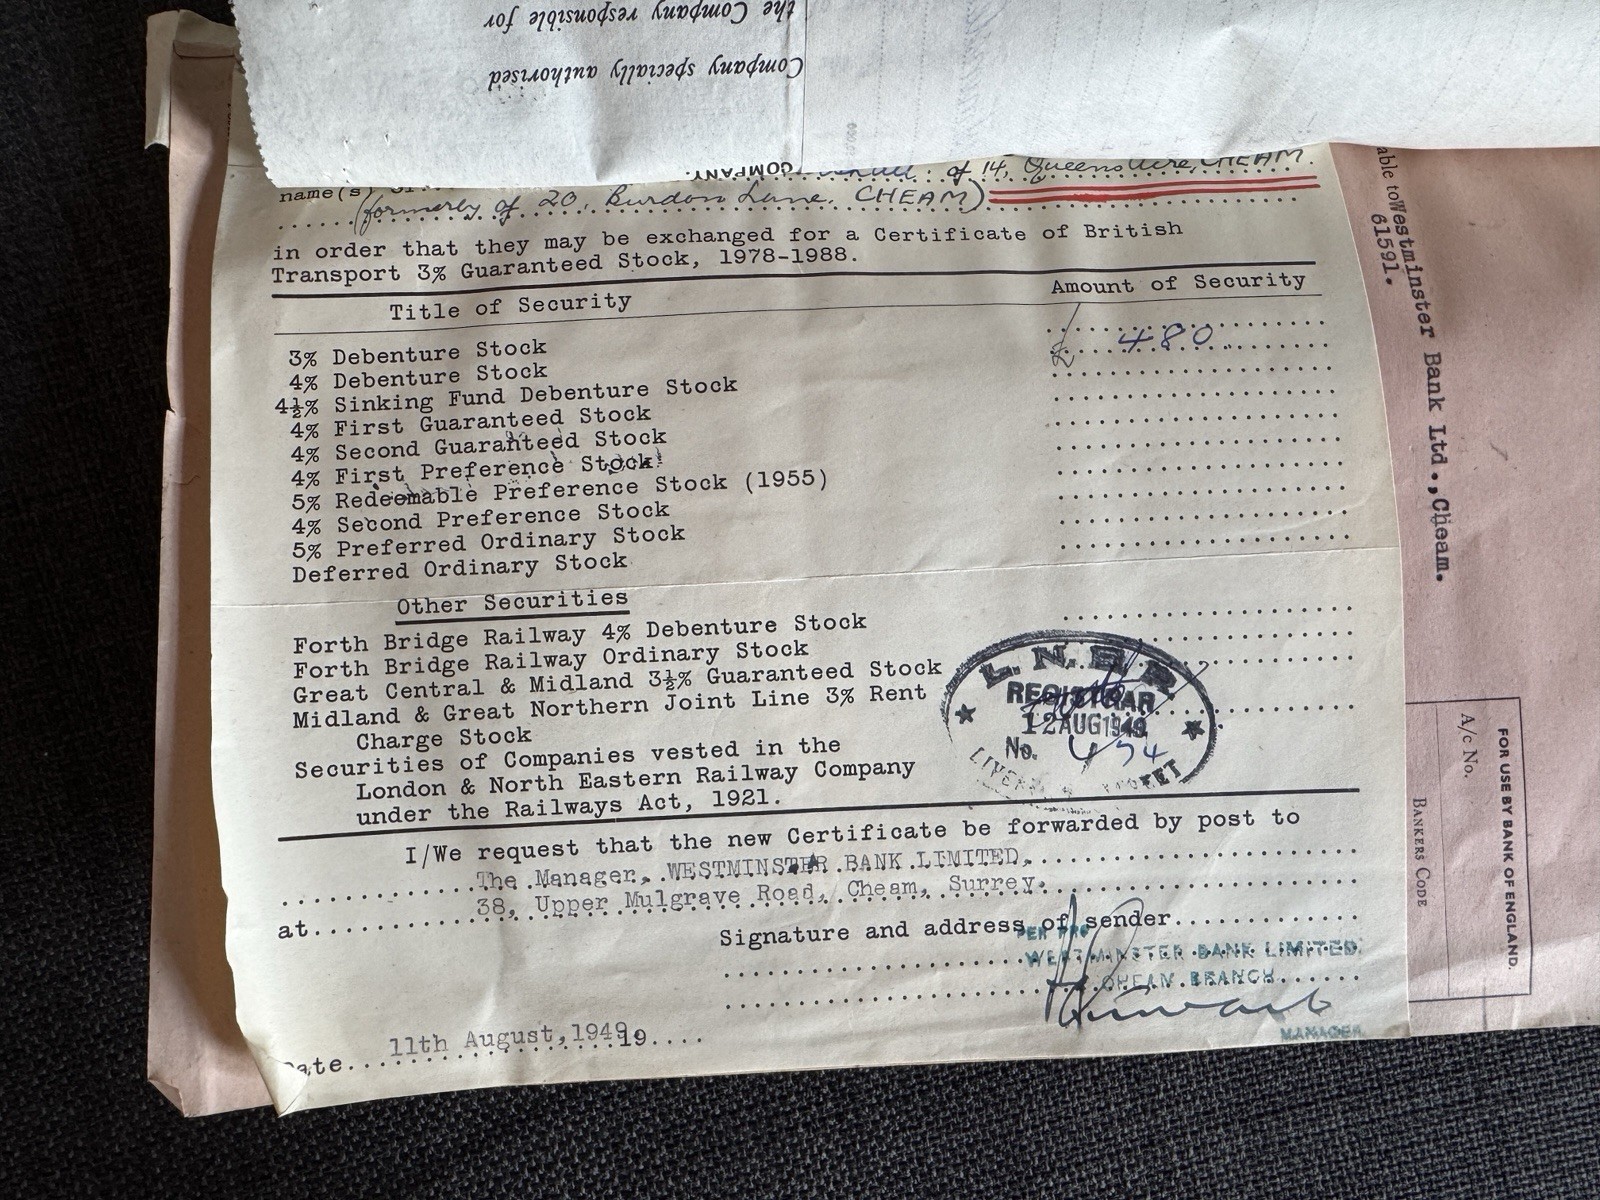 the Company responsible for
Company specially authorised
COMPANY.
name(s) of 14, Queens Acre, CHEAM.
(formerly of 20, Burdon Lane, CHEAM)
in order that they may be exchanged for a Certificate of British
Transport 3% Guaranteed Stock, 1978-1988.
Title of Security Amount of Security
3% Debenture Stock
£ 480
4% Debenture Stock
4½% Sinking Fund Debenture Stock
4% First Guaranteed Stock
4% Second Guaranteed Stock
4% First Preference Stock
5% Redeemable Preference Stock (1955)
4% Second Preference Stock
5% Preferred Ordinary Stock
Deferred Ordinary Stock
Other Securities
Forth Bridge Railway 4% Debenture Stock
Forth Bridge Railway Ordinary Stock
Great Central & Midland 3½% Guaranteed Stock
Midland & Great Northern Joint Line 3% Rent
Charge Stock
Securities of Companies vested in the
London & North Eastern Railway Company
under the Railways Act, 1921.
L.N.E.R.
REGISTRAR
12 AUG 1949
No.
I/We request that the new Certificate be forwarded by post to
The Manager, WESTMINSTER BANK LIMITED,
at 38, Upper Mulgrave Road, Cheam, Surrey.
Signature and address of sender
PER PRO
WESTMINSTER BANK LIMITED.
CHEAM BRANCH
MANAGER
Date 11th August, 1949. 19....
able to Westminster Bank Ltd., Cheam.
61591.
FOR USE BY BANK OF ENGLAND.
A/c No.
BANKERS CODE